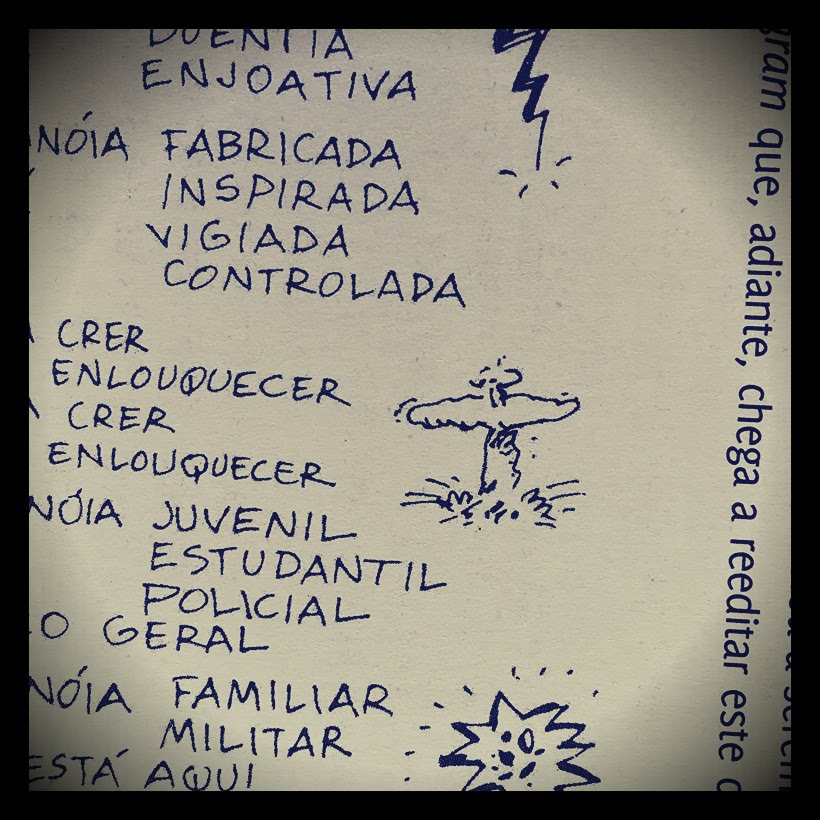 DOENTIA
ENJOATIVA
NÓIA FABRICADA
INSPIRADA
VIGIADA
CONTROLADA
CRER
ENLOUQUECER
CRER
ENLOUQUECER
NÓIA JUVENIL
ESTUDANTIL
POLICIAL
O GERAL
NÓIA FAMILIAR
MILITAR
ESTÁ AQUI
gram que, adiante, chega a reeditar este